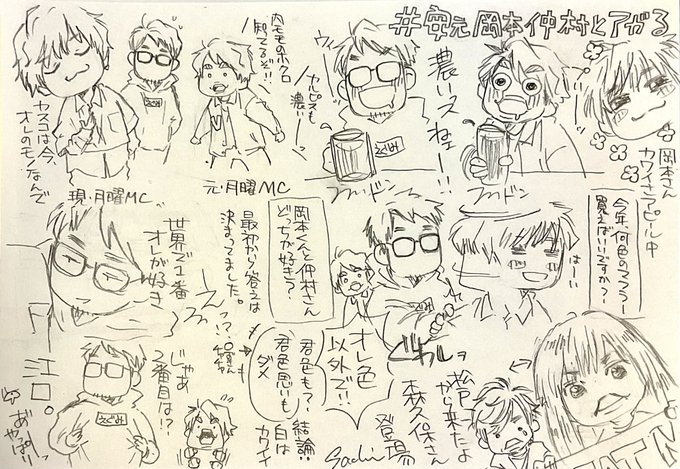 #安元岡本仲村とアガる
内モモのホクロ
知ってるぞ!!
カルピスも
濃いー
ウィ
濃いスねェー!!
ヤスコは今、
オレのモノなんで
現・月曜MC
元・月曜MC
ドン
ドン
岡本さん
カワイさアピール中
今年、何色のマフラー
買えばいいですか?
はーい
岡本くんと仲村さん
どっちが好き?
最初から答えは
決まってました。
世界で1番
オレが好き
じゃあ
2番目は!?
えぐみ
オレ色
以外で!!
君色も?
君色思いも
ダメ
結論!!
白は
カワイイ
松から来たよ
森久保さん
登場
Sachi